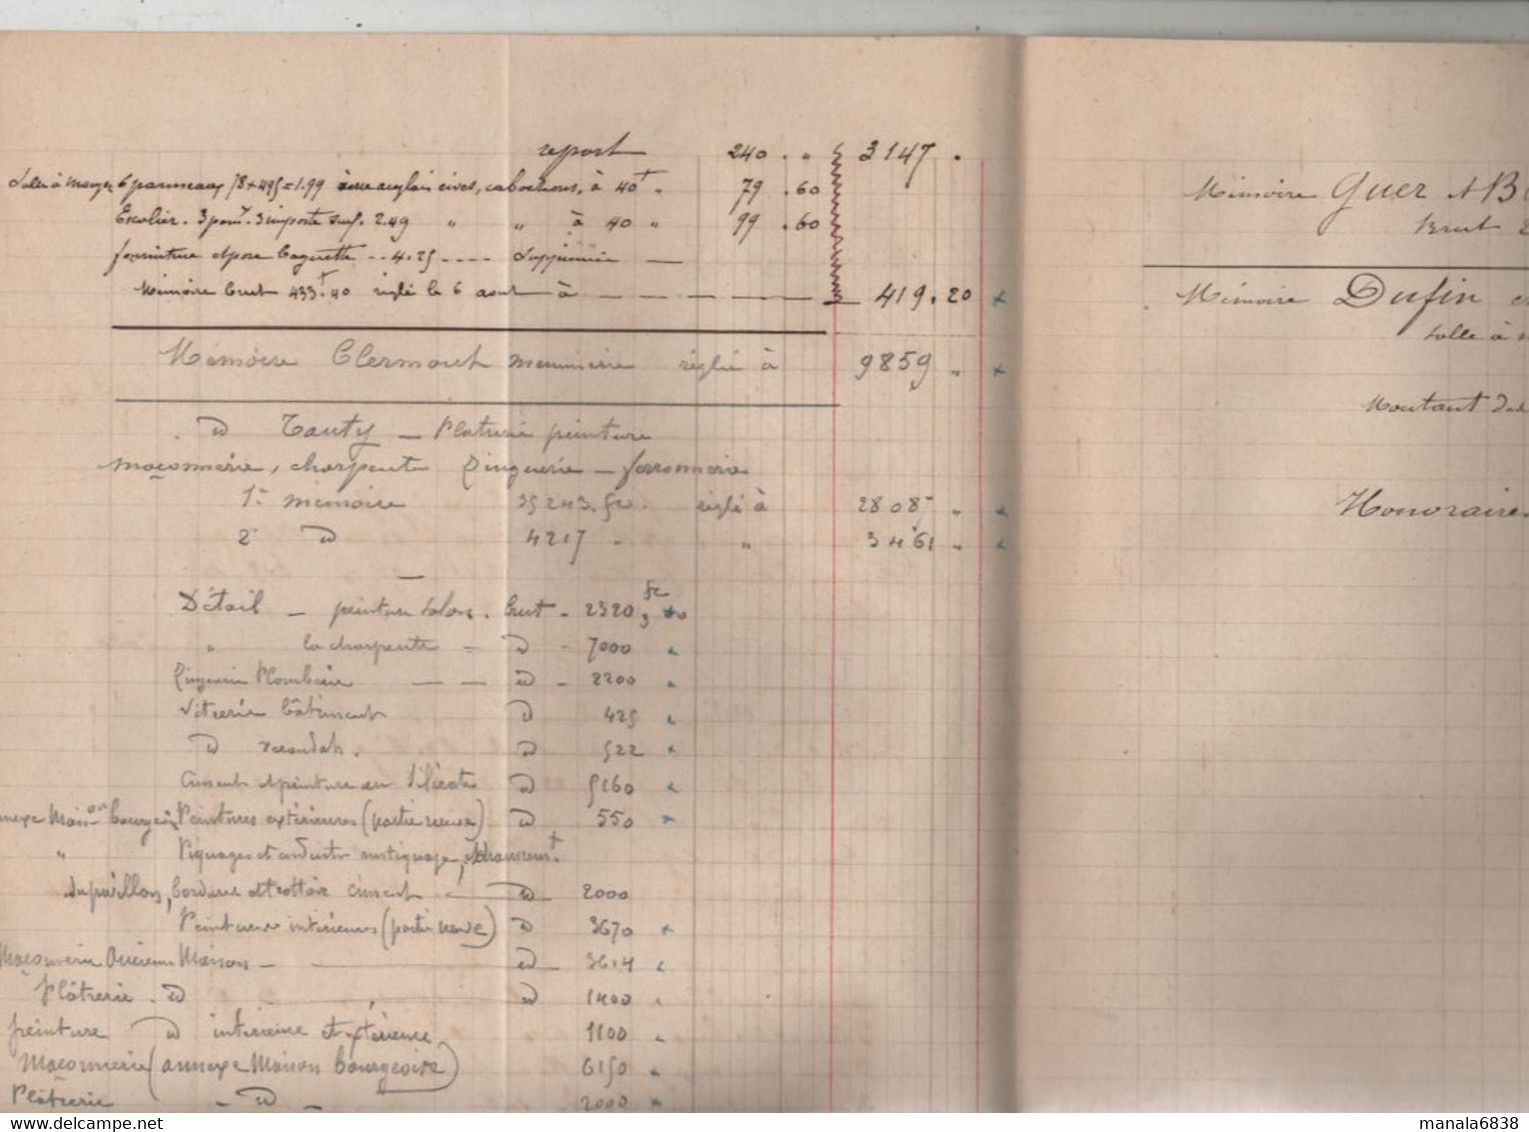 report 240 . " 3147 .
Salle à manger 6 panneaux 78 x 495 = 1.99 cives, cabochons, à 40 f " 79 . 60
Escalier . 3 pan x . 3 imposte surf. 2.49 " " à 40 " 99 . 60
fourniture et pose baguette - - 4.25 - - - - Supprimée —
Mémoire brut 433 f. 40 réglé le 6 aout à — — — — 419 . 20 x
Mémoire Clermont menuiserie réglé à 9859 " x
d° Tauty — Platrerie peinture
maçonnerie, charpente Zinguerie — ferronnerie
1er mémoire 35243.50 . réglé à 28085 " x
2e d° 4217 " " 3461 " x
Détail — peinture salon . brut - 2320,50
" la charpente = d° - 7000 "
Zinguerie Plomberie — — d° - 2200 "
Vitrerie bâtiment d° 425 "
d° verandah . d° 522 "
Ciment et peinture au Silicate d° 5160 "
annexe Maison bourgeoise Peintures extérieures (partie neuve) d° 550 "
" Piquages et enduits rustiquage,
du pavillon, bordure et trottoir ciment — d° 2000
Peintures intérieures (partie neuve) d° 3670 x
Maçonnerie Ancienne Maison — d° 3614 "
Plâtrerie . d° " d° 1400 "
peinture d° intérieure et extérieure 1100 "
Maçonnerie (annexe Maison bourgeoise) 6150 "
Plâtrerie — d° — 2000 "
Mémoire Guer
brut
Mémoire Dufin
salle à
Montant
Honoraire
delcampe.net
manala6838